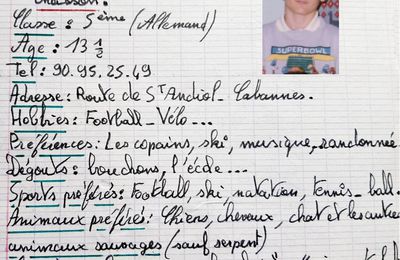 Classe : 5ème (Allemand)
SUPERBOWL
Age : 13 1/2
Tel : 90.95.25.49
Adresse : Route de St Andiol - Cabannes.
Hobbies : Football - Vélo...
Préférences : Les copains, ski, musique, randonnée.
Dégouts : bouchons, l'école...
Sports préférés : Football, ski natation, tennis - ball.
Animaux préférés : Chiens, chevaux, chat et les autres
animaux sauvages (sauf serpent)